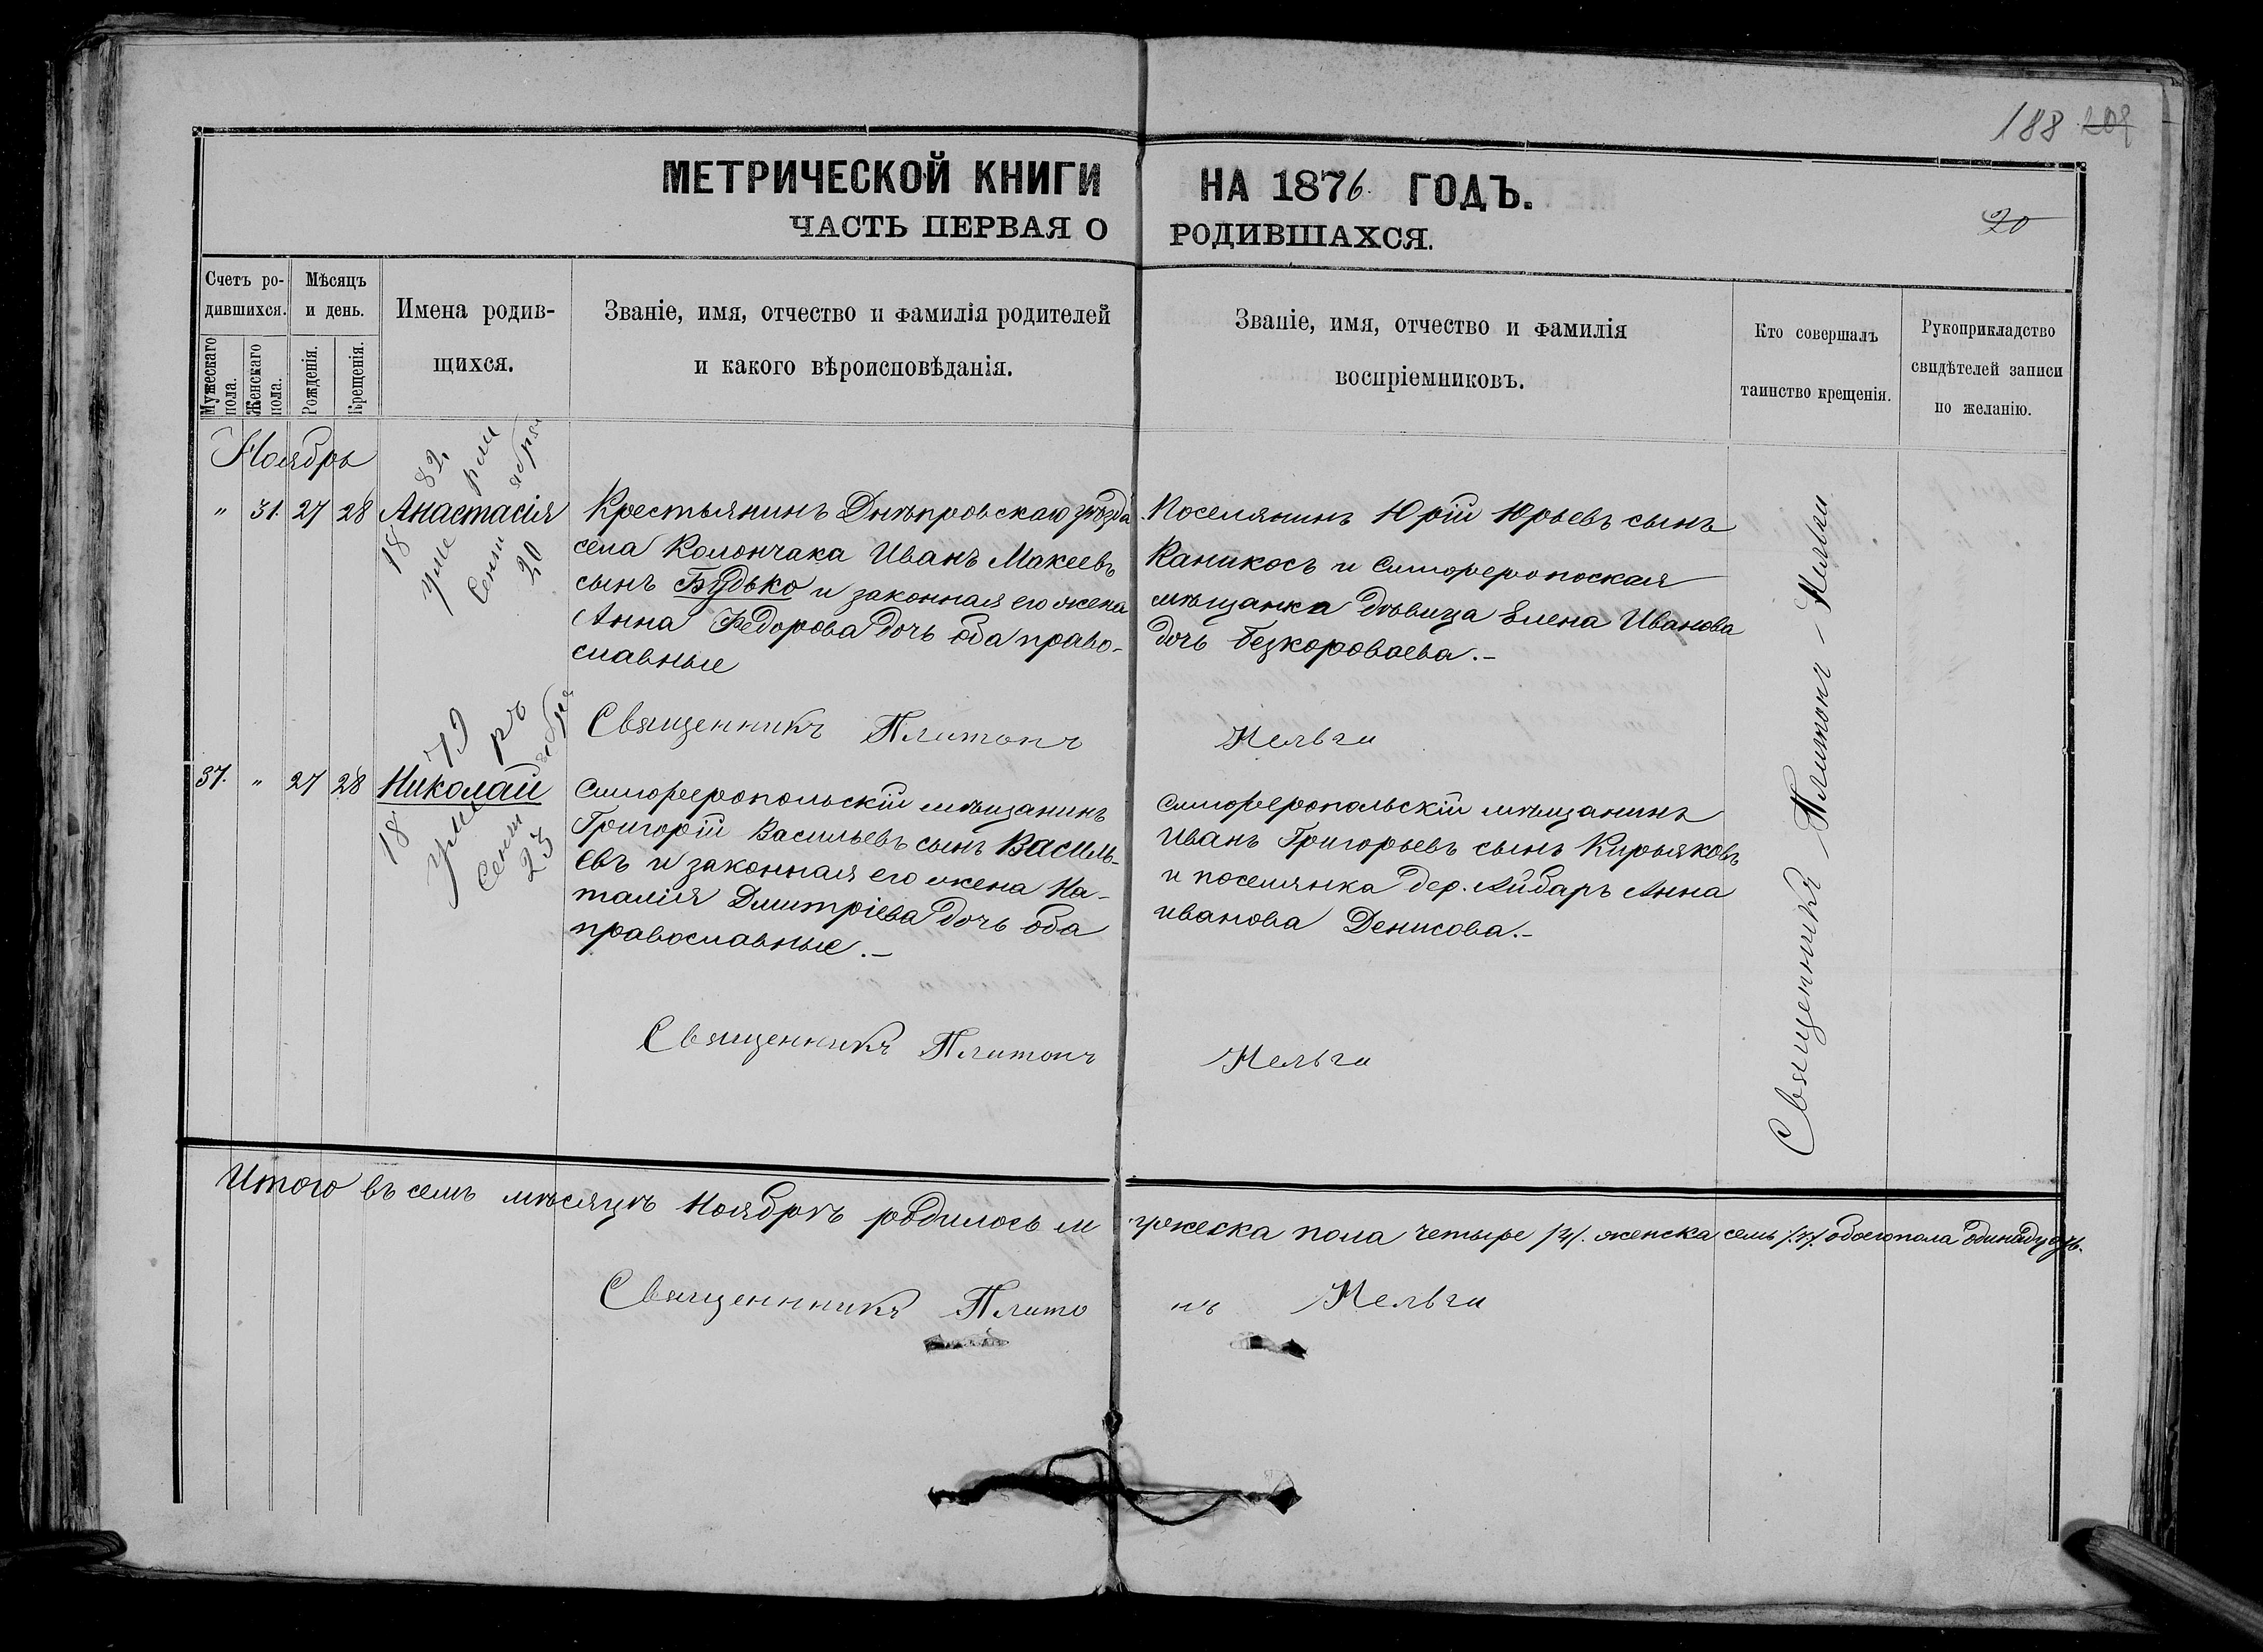 188 209
МЕТРИЧЕСКОЙ КНИГИ НА 1876 ГОДЪ.
ЧАСТЬ ПЕРВАЯ О РОДИВШАХСЯ.
20
Счетъ ро-
дившихся.
Мужескаго пола.
Женскаго пола.
Мѣсяцъ
и день.
Рожденія.
Крещенія.
Имена родив-
щихся.
Званіе, имя, отчество и фамилія родителей
и какого вѣроисповѣданія.
Званіе, имя, отчество и фамилія
воспріемниковъ.
Кто совершалъ
таинство крещенія.
Рукоприкладство
свидѣтелей записи
по желанію.
Ноябрь
" 31. 27 28 Анастасія
1882
умерли
Сентября
20
Крестьянинъ Днѣпровскаго уѣзда
села Колончака Иванъ Макеевъ
сынъ Будько и законная его жена
Анна Федорова дочь оба право-
славные
Поселянинъ Юрій Юрьевъ сынъ
Каникосъ и Симферопоская
мѣщанка дѣвица Елена Иванова
дочь Безкороваева.-
Священникъ Платонъ
37. " 27 28 Николай
1879
умеръ
Сентября
23
Симферопольскій мѣщанинъ
Григорій Васильевъ сынъ Василь-
евъ и законная его жена На-
талія Дмитріева дочь оба
православные.-
Симферопольскій мѣщанинъ
Иванъ Григорьевъ сынъ Кирьяковъ
и поселянка дер. Айбаръ Анна
иванова Денисова.-
Священникъ Платонъ
Священникъ Платонъ
Итого въ семъ мѣсяцѣ Ноябрѣ родилось мужеска пола четыре /4/. женска семь /7/. обоегопола одинадцать.
Священникъ Платонъ